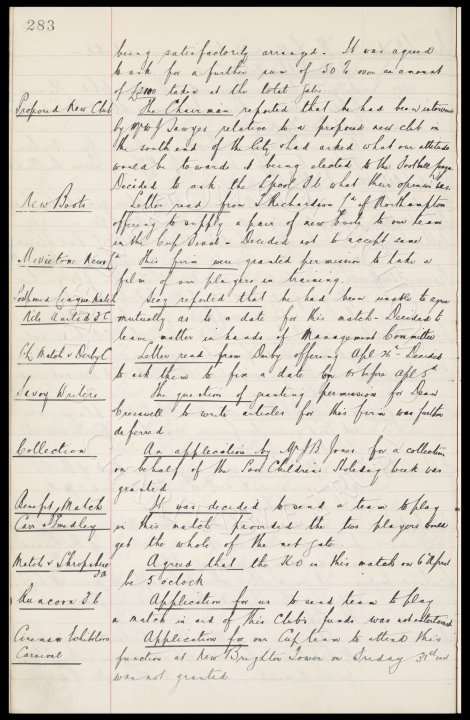 283
being satisfactorily arranged. It was agreed
to ask for a further sum of 50% over an amount
of £2100 taken at the total gate.
Proposed New Club The Chairman reported that he had been interviewed
by Mr W J Sawyer relative to a proposed new club on
the south end of the City & had asked what our attitude
would be towards it being elected to the Football League.
Decided to ask the Lpool F.C. what their opinion was.
New Boots Letter read from Richardson of Northampton
offering to supply a pair of new boots to our team
in the Cup Final - Decided not to accept same
Movietone News Co This firm were granted permission to take a
film of our players in training.
Postponed League Match Secy reported that he had been unable to agree
Utd F.C. mutually as to a date for this match. Decided to
leave matter in hands of Management Committee
Match v Derby C Letter read from Derby offering Apl Decided
to ask them to fix a date on or before Apl
Savoy Writers The question of granting permission for Dean
Cresswell to write articles for this firm was further
deferred.
Collection An application by Mr J B Jones for a collection
on behalf of the Poor Children's Holiday week was
granted
Benefit Match It was decided to send a team to play
Carr & Smedley in this match provided the two players would
get the whole of the net gate.
Match v Shropshire Agreed that the K.O in this match on 6th April
be 5 oclock
Runcorn F.C. Application for us to send team to play
a match in aid of this Club's funds was not entertained
Cinema Exhibitors Application for our Cup team to attend this
Carnival function at New Brighton Tower on Friday 31st
was not granted